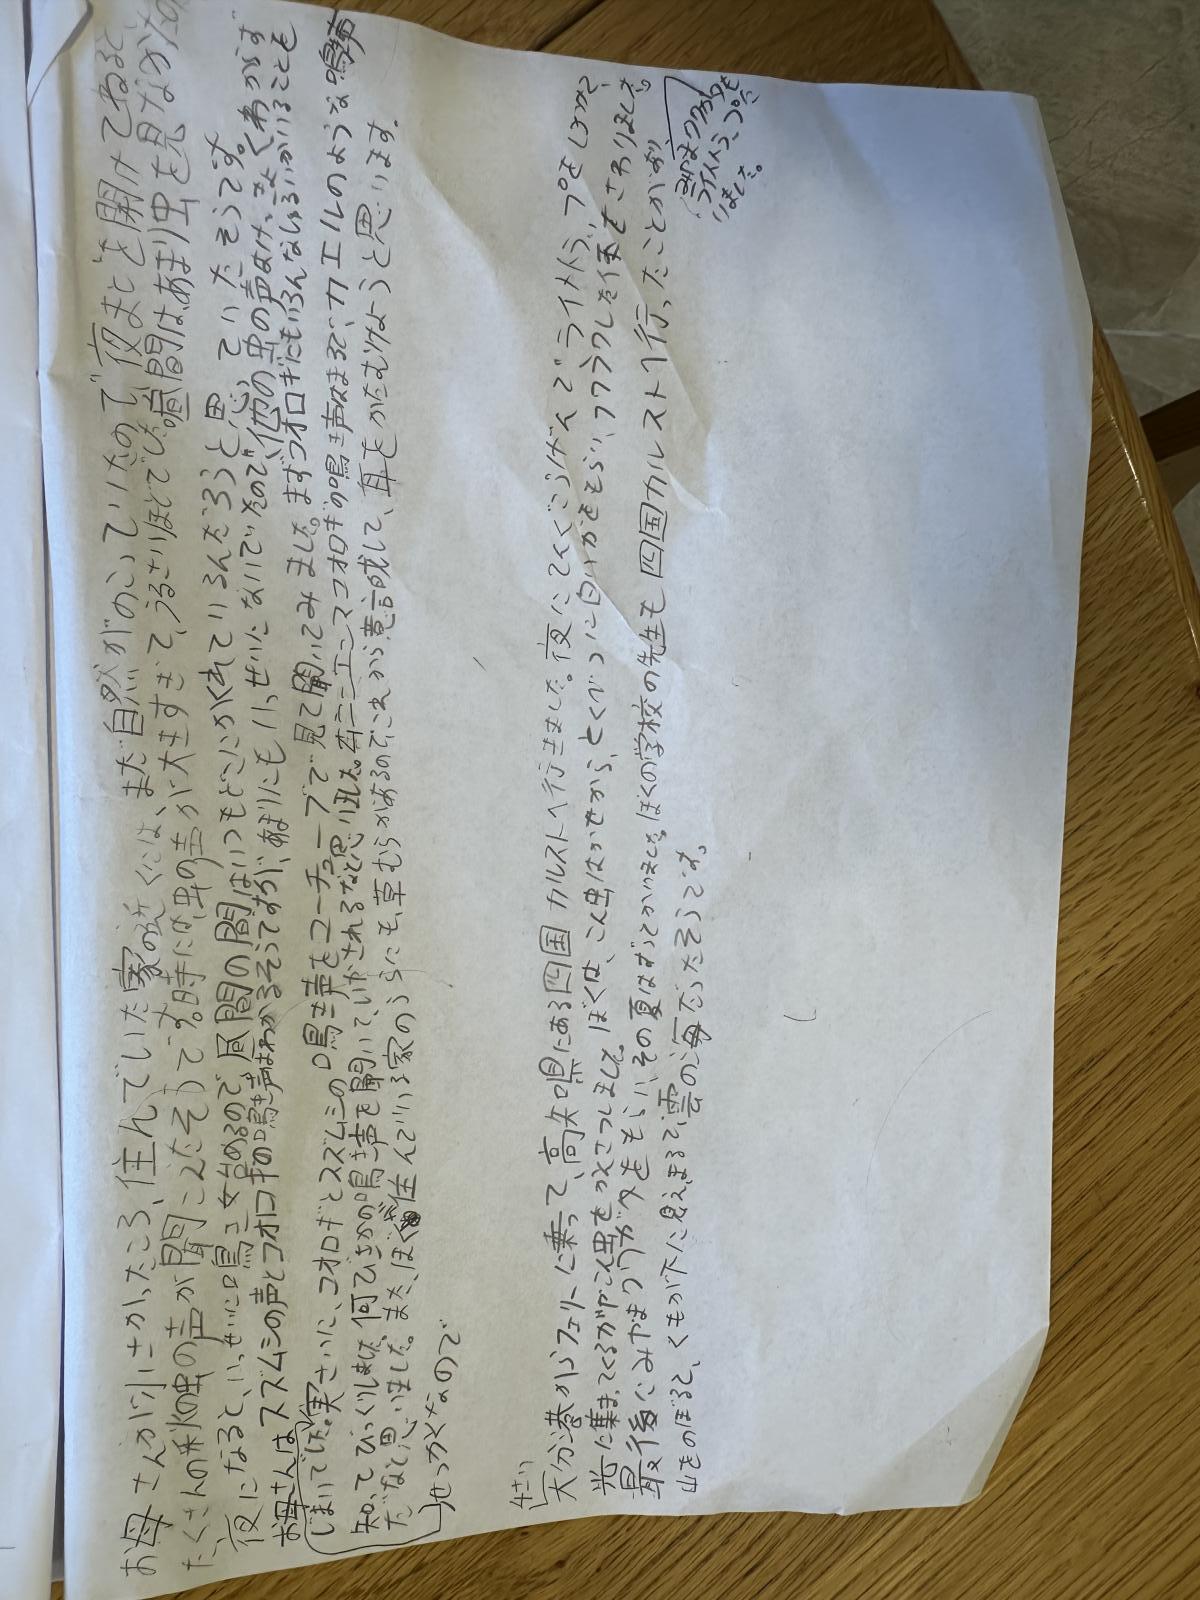 お母さんが小さかったころ、住んでいた家の近くには、まだ自然がのこっていたので夜まどを開けてねると
たくさんの秋の虫の声が聞こえたそうです。時には虫の声が大きすぎて、うるさいほどでした。昼間はあまり虫を見なかった
夜になると、いっせいに鳴き始めるので、昼間の間はいつもどこにかくれているんだろうと思っていたそうです。
お母さんはスズムシの声とコオロギの鳴き声はわかるそうですが、あまりにもいっせいになないていたので、他の虫の声はけっきょくわからず
じまいでした。実さいに、コオロギとスズムシの鳴き声をユーチューブで見て聞いてみました。まずコオロギにもいろんなしゅるいがいることも
知ってびっくりしました。何びきかの鳴き声を聞いて、いやされるなと思いました。エンマコオロギの鳴き声はまるで、カエルのような鳴き声
だなと思いました。また、ぼくが住んでいる家のうらにも、草むらがあるのでこれから意識して、耳をかたむけようと思います。
せっかくなので
4さい
大分港からフェリーに乗って、高知県にある四国カルストへ行きました。夜にてんぐこうげんでライトトラップをしかけて
光に集まってくるガやこん虫をかんさつしました。ぼくは、こん虫はかせから、とくべつに白いガをもらい、フワフワした体をさわりました。
最後にみやまクワガタをもらい、その夏はずっとかいました。ぼくの学校の先生も四国カルストへ行ったことがあり
山をのぼると、くもが下に見え、まるで、雲の海だったそうです。
みやまクワガタも
ライトトラップで
いました。